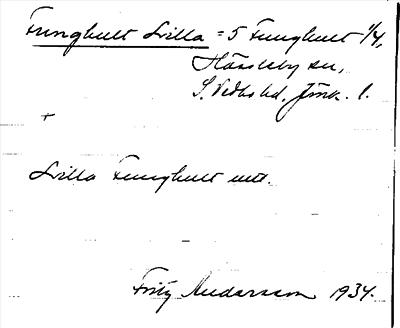 Frunghult Lilla = 5 Frunghult 1/4,
Hässleby sn,
S. Vedbo hd, Jönk. l.
+
Lilla Frunghult utt.
Fritz Andersson 1934.